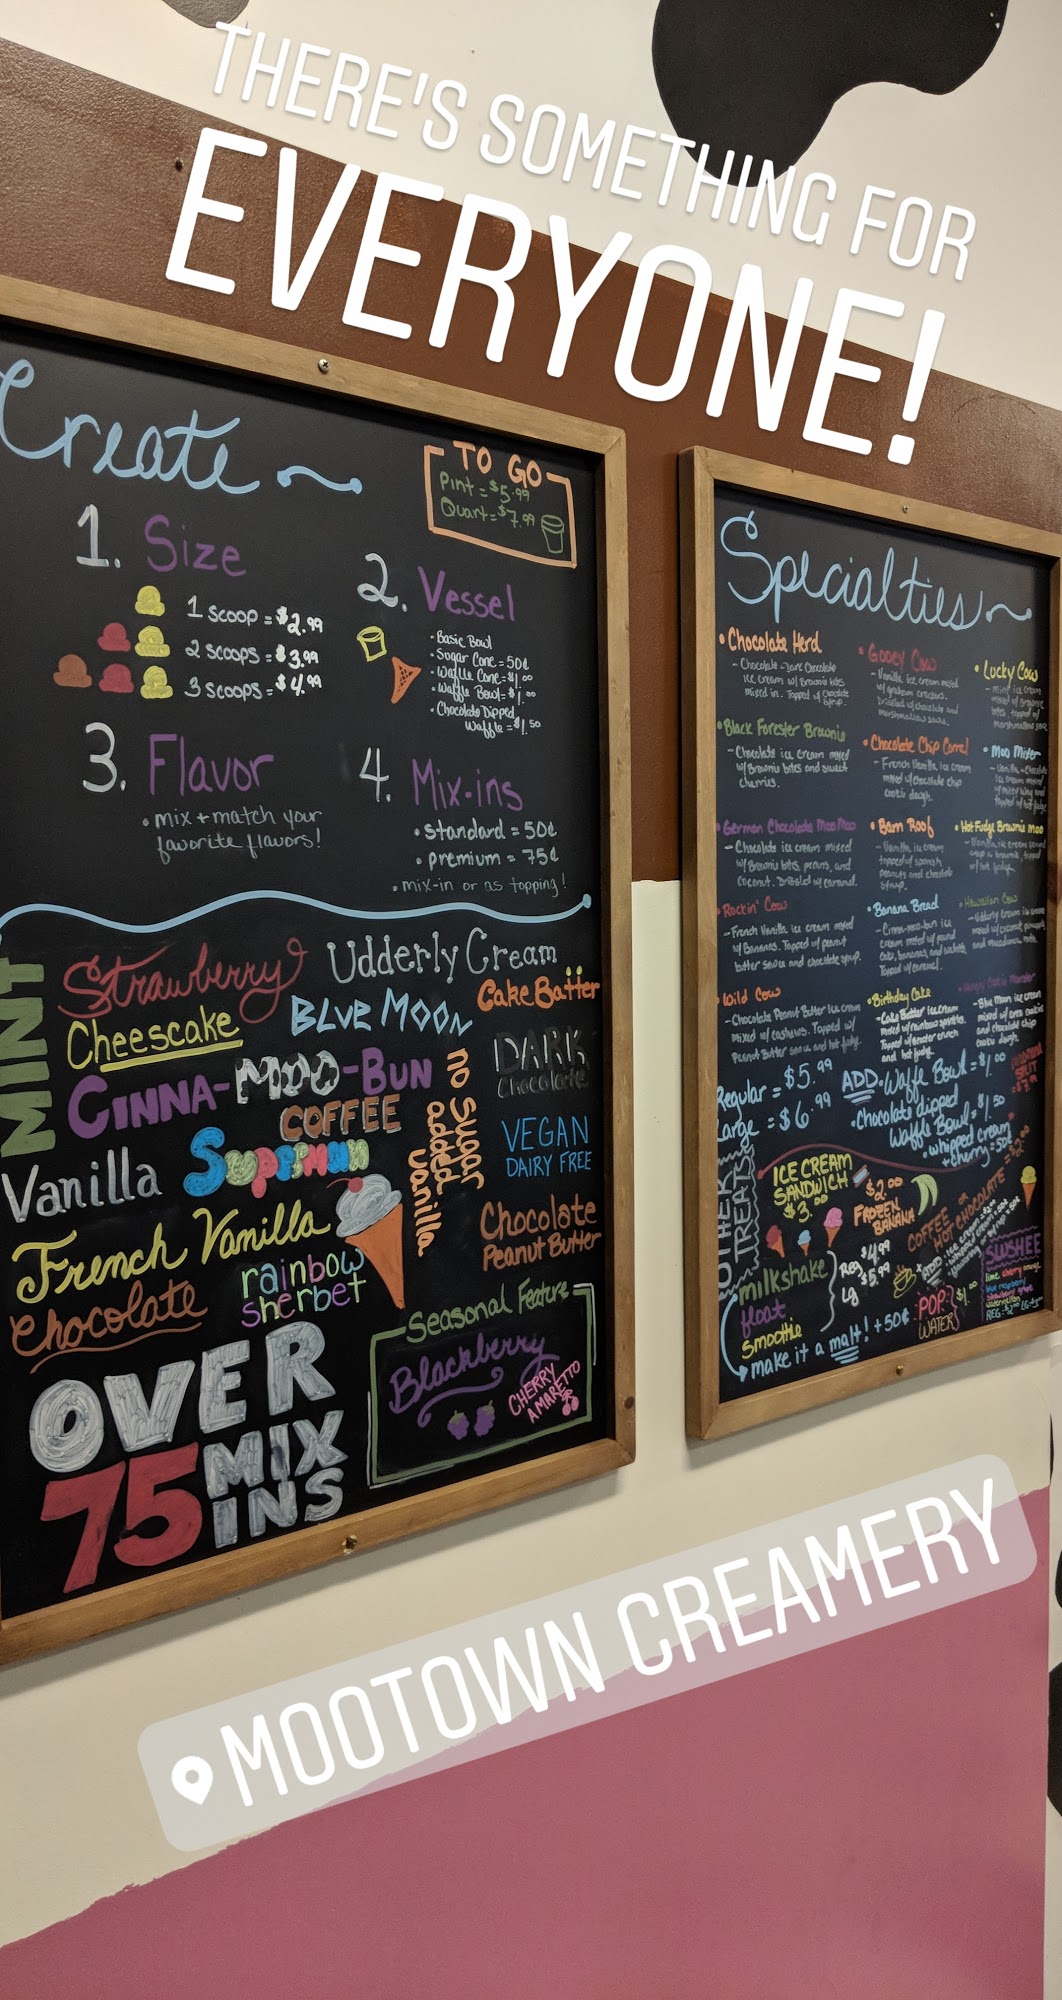 THERE'S SOMETHING FOR
EVERYONE!
Create
TO GO
Pint = $5.99
Quart = $7.99
1. Size
1 scoop = $2.99
2 scoops = $3.99
3 scoops = $4.99
2. Vessel
• Basic Bowl
• Sugar Cone = 50¢
• Waffle Cone = $1.00
• Waffle Bowl = $1.00
• Chocolate Dipped
Waffle = $1.50
3. Flavor
• mix + match your
favorite flavors!
4. Mix-ins
• standard = 50¢
• premium = 75¢
• mix-in or as topping!
MINT
Strawberry
Udderly Cream
Cheescake
BLUE MOON
Cake Batter
CINNA-MOO-BUN
DARK
Chocolate
COFFEE
no sugar
added
vanilla
VEGAN
DAIRY FREE
Vanilla
Superman
French Vanilla
Chocolate
Peanut Butter
Chocolate
rainbow
sherbet
Seasonal Feature
Blackberry
CHERRY
AMARETTO
OVER
75 MIX
INS
Specialties
• Chocolate Herd
- Chocolate - Dark Chocolate
ice cream w/ Brownie bites
mixed in. Topped w/ Chocolate
Syrup.
• Gooey Cow
- Vanilla ice cream mixed
w/ graham crackers.
Drizzled w/ chocolate and
marshmallow sauce.
• Lucky Cow
- Mint ice cream
mixed w/ brownie
bites, topped w/
marshmallow sauce
• Black Forester Brownie
- Chocolate ice cream mixed
w/ Brownie bites and sweet
cherries.
• Chocolate Chip Corral
- French Vanilla ice cream
mixed w/ chocolate chip
cookie dough.
• Moo Mixer
- Vanilla + Chocolate
ice cream mixed
w/ milky way and
topped w/ hot fudge
• German Chocolate MooMoo
- Chocolate ice cream mixed
w/ Brownie bites, pecans, and
coconut. Drizzled w/ caramel.
• Barn Roof
- Vanilla ice cream
topped w/ spanish
peanuts and chocolate
syrup.
• Hot Fudge Brownie Moo
- Vanilla ice cream
w/ hot fudge.
• Rockin' Cow
- French Vanilla ice cream mixed
w/ Bananas. Topped w/ peanut
butter sauce and chocolate syrup.
• Banana Bread
- Cinna-moo-bun ice
cream mixed w/ pound
cake, bananas, and walnuts.
Topped w/ caramel.
• Hawaiian Cow
- Udderly cream ice cream
mixed w/ coconut, pineapple,
and macadamia nuts.
• Wild Cow
- Chocolate Peanut Butter Ice cream
mixed w/ cashews. Topped w/
Peanut Butter sauce and hot fudge.
• Birthday Cake
- Cake Batter ice cream
mixed w/ rainbow sprinkles.
Topped w/
and hot fudge.
• Hungry Cookie Monster
- Blue Moon ice cream
mixed w/ oreo cookies
and chocolate chip
cookie dough.
Regular = $5.99
Large = $6.99
ADD • Waffle Bowl = $1.00
• Chocolate dipped
Waffle Bowl = $1.50
• whipped cream
+ cherry = 50¢
SPLIT
OTHER TREATS
ICE CREAM
SANDWICH
$3.00
$2.00
FROZEN
BANANA
COFFEE OR
HOT CHOCOLATE = $2.00
milkshake
float
smoothie
Reg $4.99
Lg $5.99
make it a malt! + 50¢
POP
WATER
$1.00
SLUSHEE
lime cherry orange
blue raspberry
strawberry grape
watermelon
MOOTOWN CREAMERY